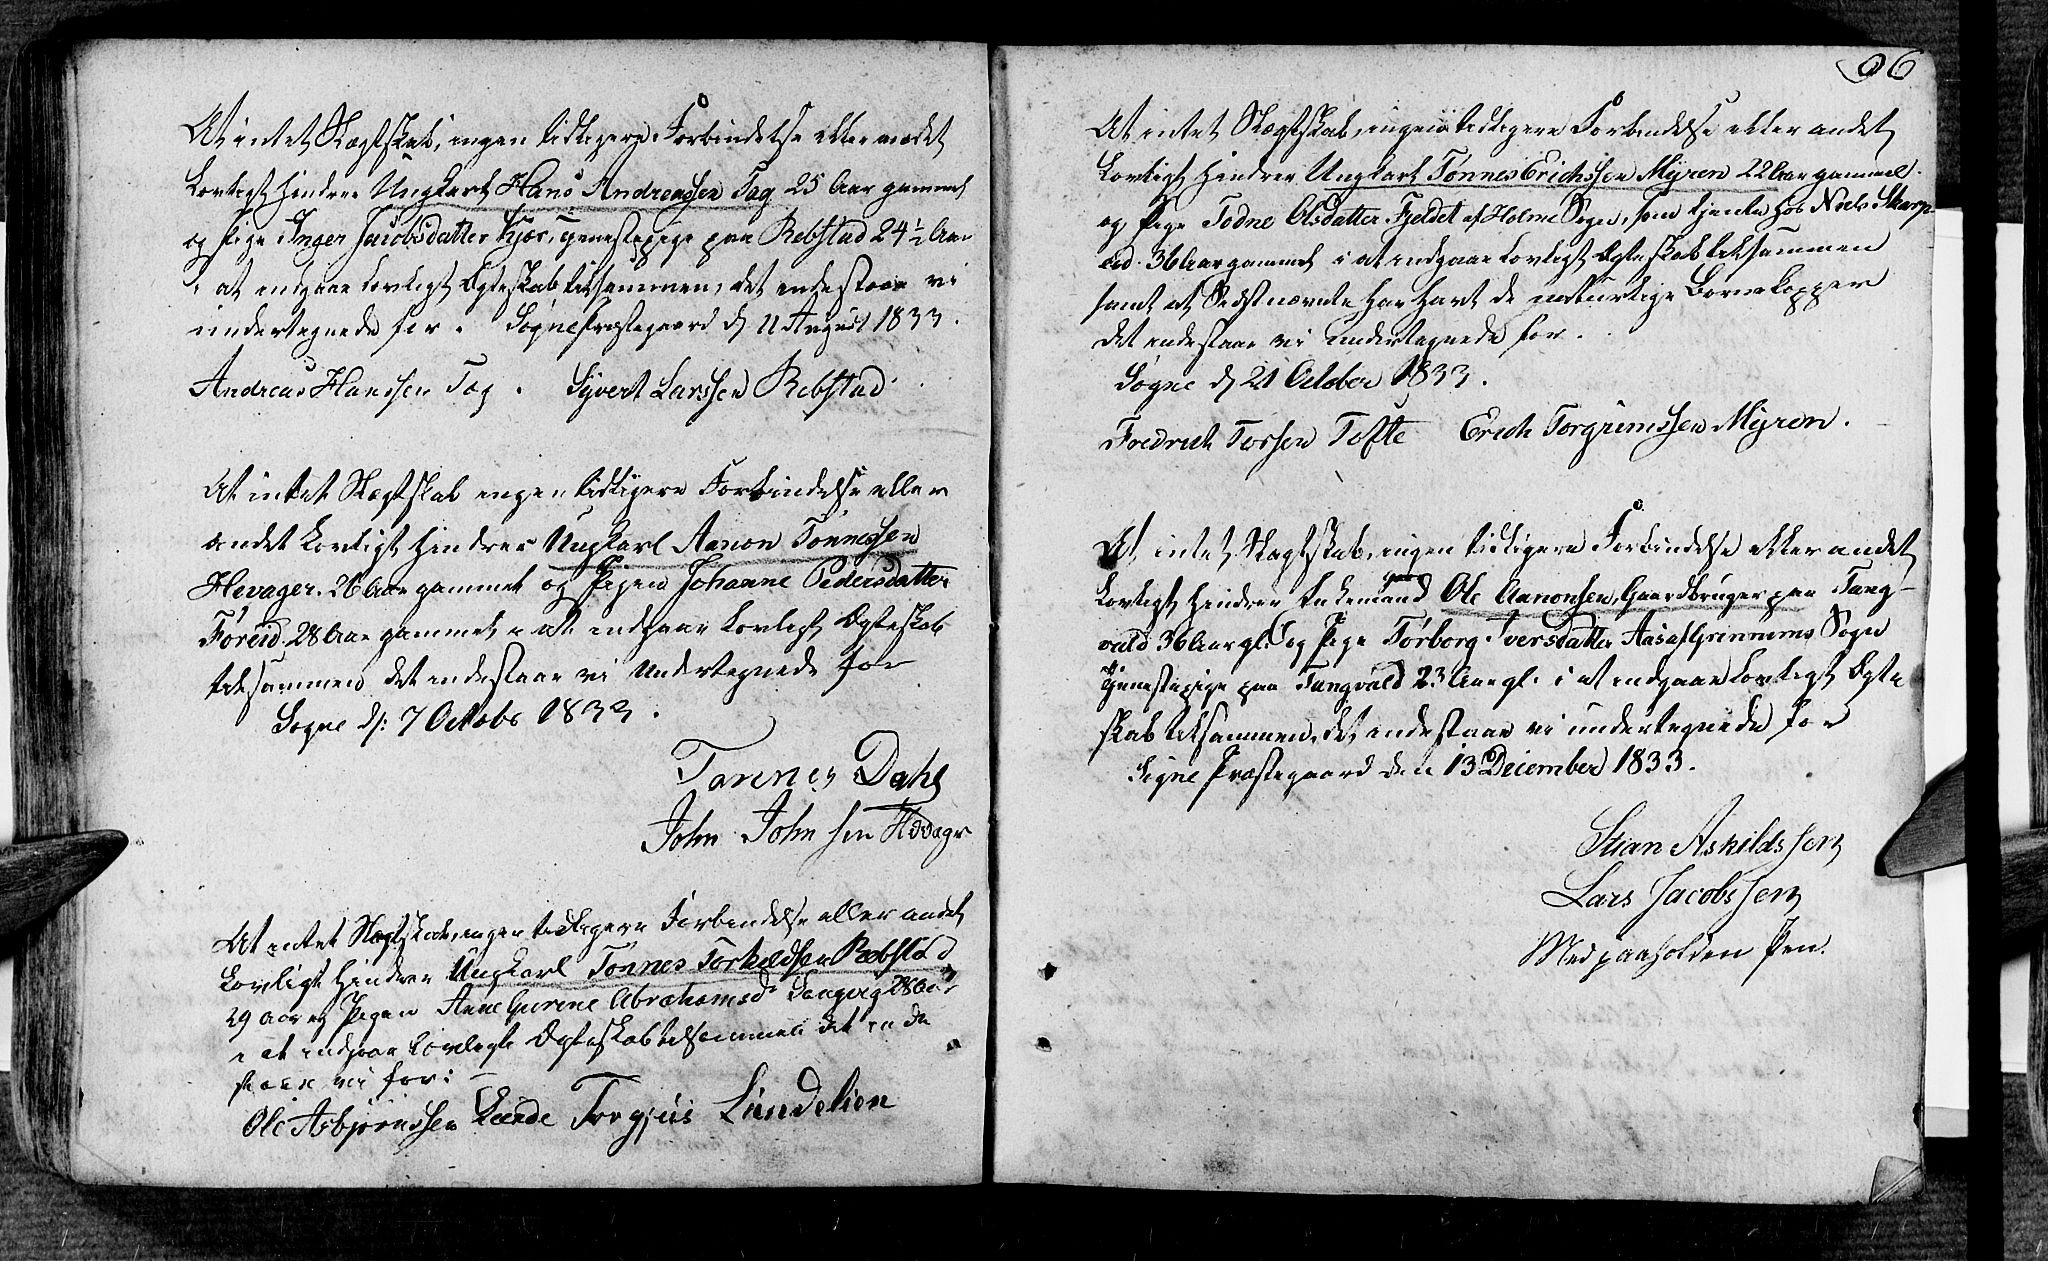 At intet Slægtskab, ingen tidligere Forbindelse eller andet
Lovligt hindrer Ungkarl Hans Andreassen Tag 25 Aar gammel
og Pige Inger Jacobsdatter Kjær, tjenestepige paa Rebstad 24 1/2 Aar
i at indgaae lovligt Ægteskab tilsammen, det indestaaer vi
undertegnede for. Søgne Præstegaard d 11 August 1833.
Andreas Hanssen Tag. Syvert Larssen Rebstad
At intet Slægtskab ingen tidligere Forbindelse eller
andet Lovligt hindrer Ungkarl Aanon Tønnessen
Hevager. 26 Aar gammel og Pigen Johanne Pedersdatter
Føreid. 28 Aar gammel i at indgaae Lovligt Ægteskab
tilsammen det indestaaer vi Undertegnede for
Søgne d: 7 Octobr 1833.
Tønnes Dahl
John Johnsen
At intet Slægtskab, ingen tidligere Forbindelse eller andet
Lovligt hindrer Ungkarl Tønnes Torkeldsen Rebstad
29 Aar og Pigen Anne Gurine Abrahamsd. Langvig 28 Aar
i at indgaae lovligt Ægteskab tilsammen det inde
staaer vi for: –
Ole Asbjørnssen Torgjus Lundelien
96
At intet Slægtskab, ingen tidligere Forbindelse eller andet
Lovligt hindrer Ungkarl Tønnes Erichssen Myren 22 Aar gammel.
og Pige Todne Olsdatter Fjeldet af Holme Sogn, som tjente hos Niels Skarp-
eid. 36 Aar gammel i at indgaae lovligt Ægteskab tilsammen
samt at Sidstnævnte har havt de naturlige Børnekopper
det indestaaer vi undertegnede for.
Søgne d 21 October 1833.
Fredrich Torsen Tofte Erich Torgrimssen Myren.
At intet Slægtskab, ingen tidligere Forbindelse eller andet
Lovligt hindrer Enkemand Ole Aanonsen, Gaardbruger paa Tang-
vald 36 Aar gl. og Pige Torborg Iversdatter Aas af Grinnims Sogn
tjenestepige paa Tangvald 23 Aar gl. i at indgaae Lovligt Ægte
skab tilsammen, det indestaaer vi undertegnede for
Søgne Præstegaard den 13 December 1833.
Stian Askildssen
Lars Jacobssen
Med paaholden Pen.